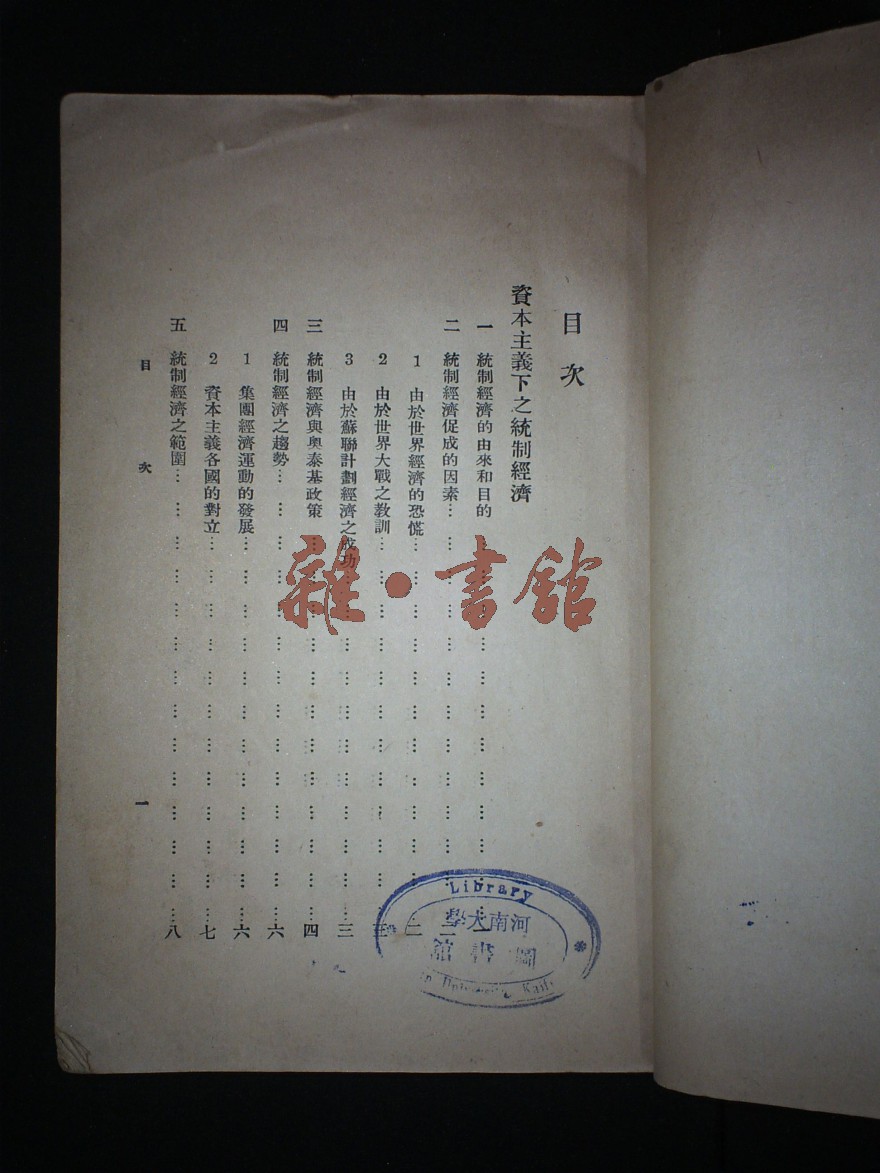 目次
資本主義下之統制經濟
一 統制經濟的由來和目的………………………………
二 統制經濟促成的因素………………………………二
1 由於世界經濟的恐慌………………………………二
2 由於世界大戰之教訓………………………………三
3 由於蘇聯計劃經濟之成功………………………………三
三 統制經濟與奧泰基政策………………………………四
四 統制經濟之趨勢………………………………六
1 集團經濟運動的發展………………………………六
2 資本主義各國的對立………………………………七
五 統制經濟之範圍………………………………八
目次 一
雜·書館
Library
河南大學
圖書館
University, Kaif